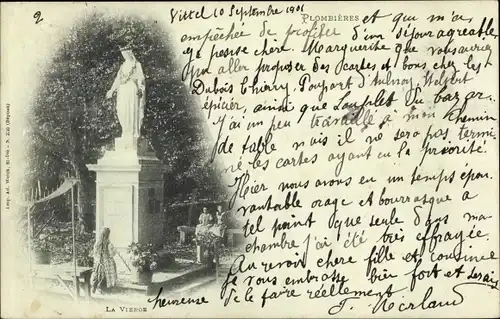 2
Vittel 10 Septembre 1901
PLOMBIÈRES
et qui m'a
empêchée de profiter d'un séjour agréable
Je pense chère Marguerite que vous aurez
qu'aller proposer des cartes et bons chez les
Dubois Thierry, Poupart d'Aulnoy
épicier, ainsi que Louplet du bazar.
J'ai un peu travaillé à mon chemin
de table mais il ne sera pas termi
né les cartes ayant eu la priorité.
Hier nous avons eu un temps épou
vantable orage et bourrasque à
tel point que seule dans ma
chambre j'ai été très effrayée.
Au revoir chère fille et cousine
je vous embrasse bien fort et serais
heureuse de le faire réellement
LA VIERGE
Imp. Ad. Weick, St-Dié